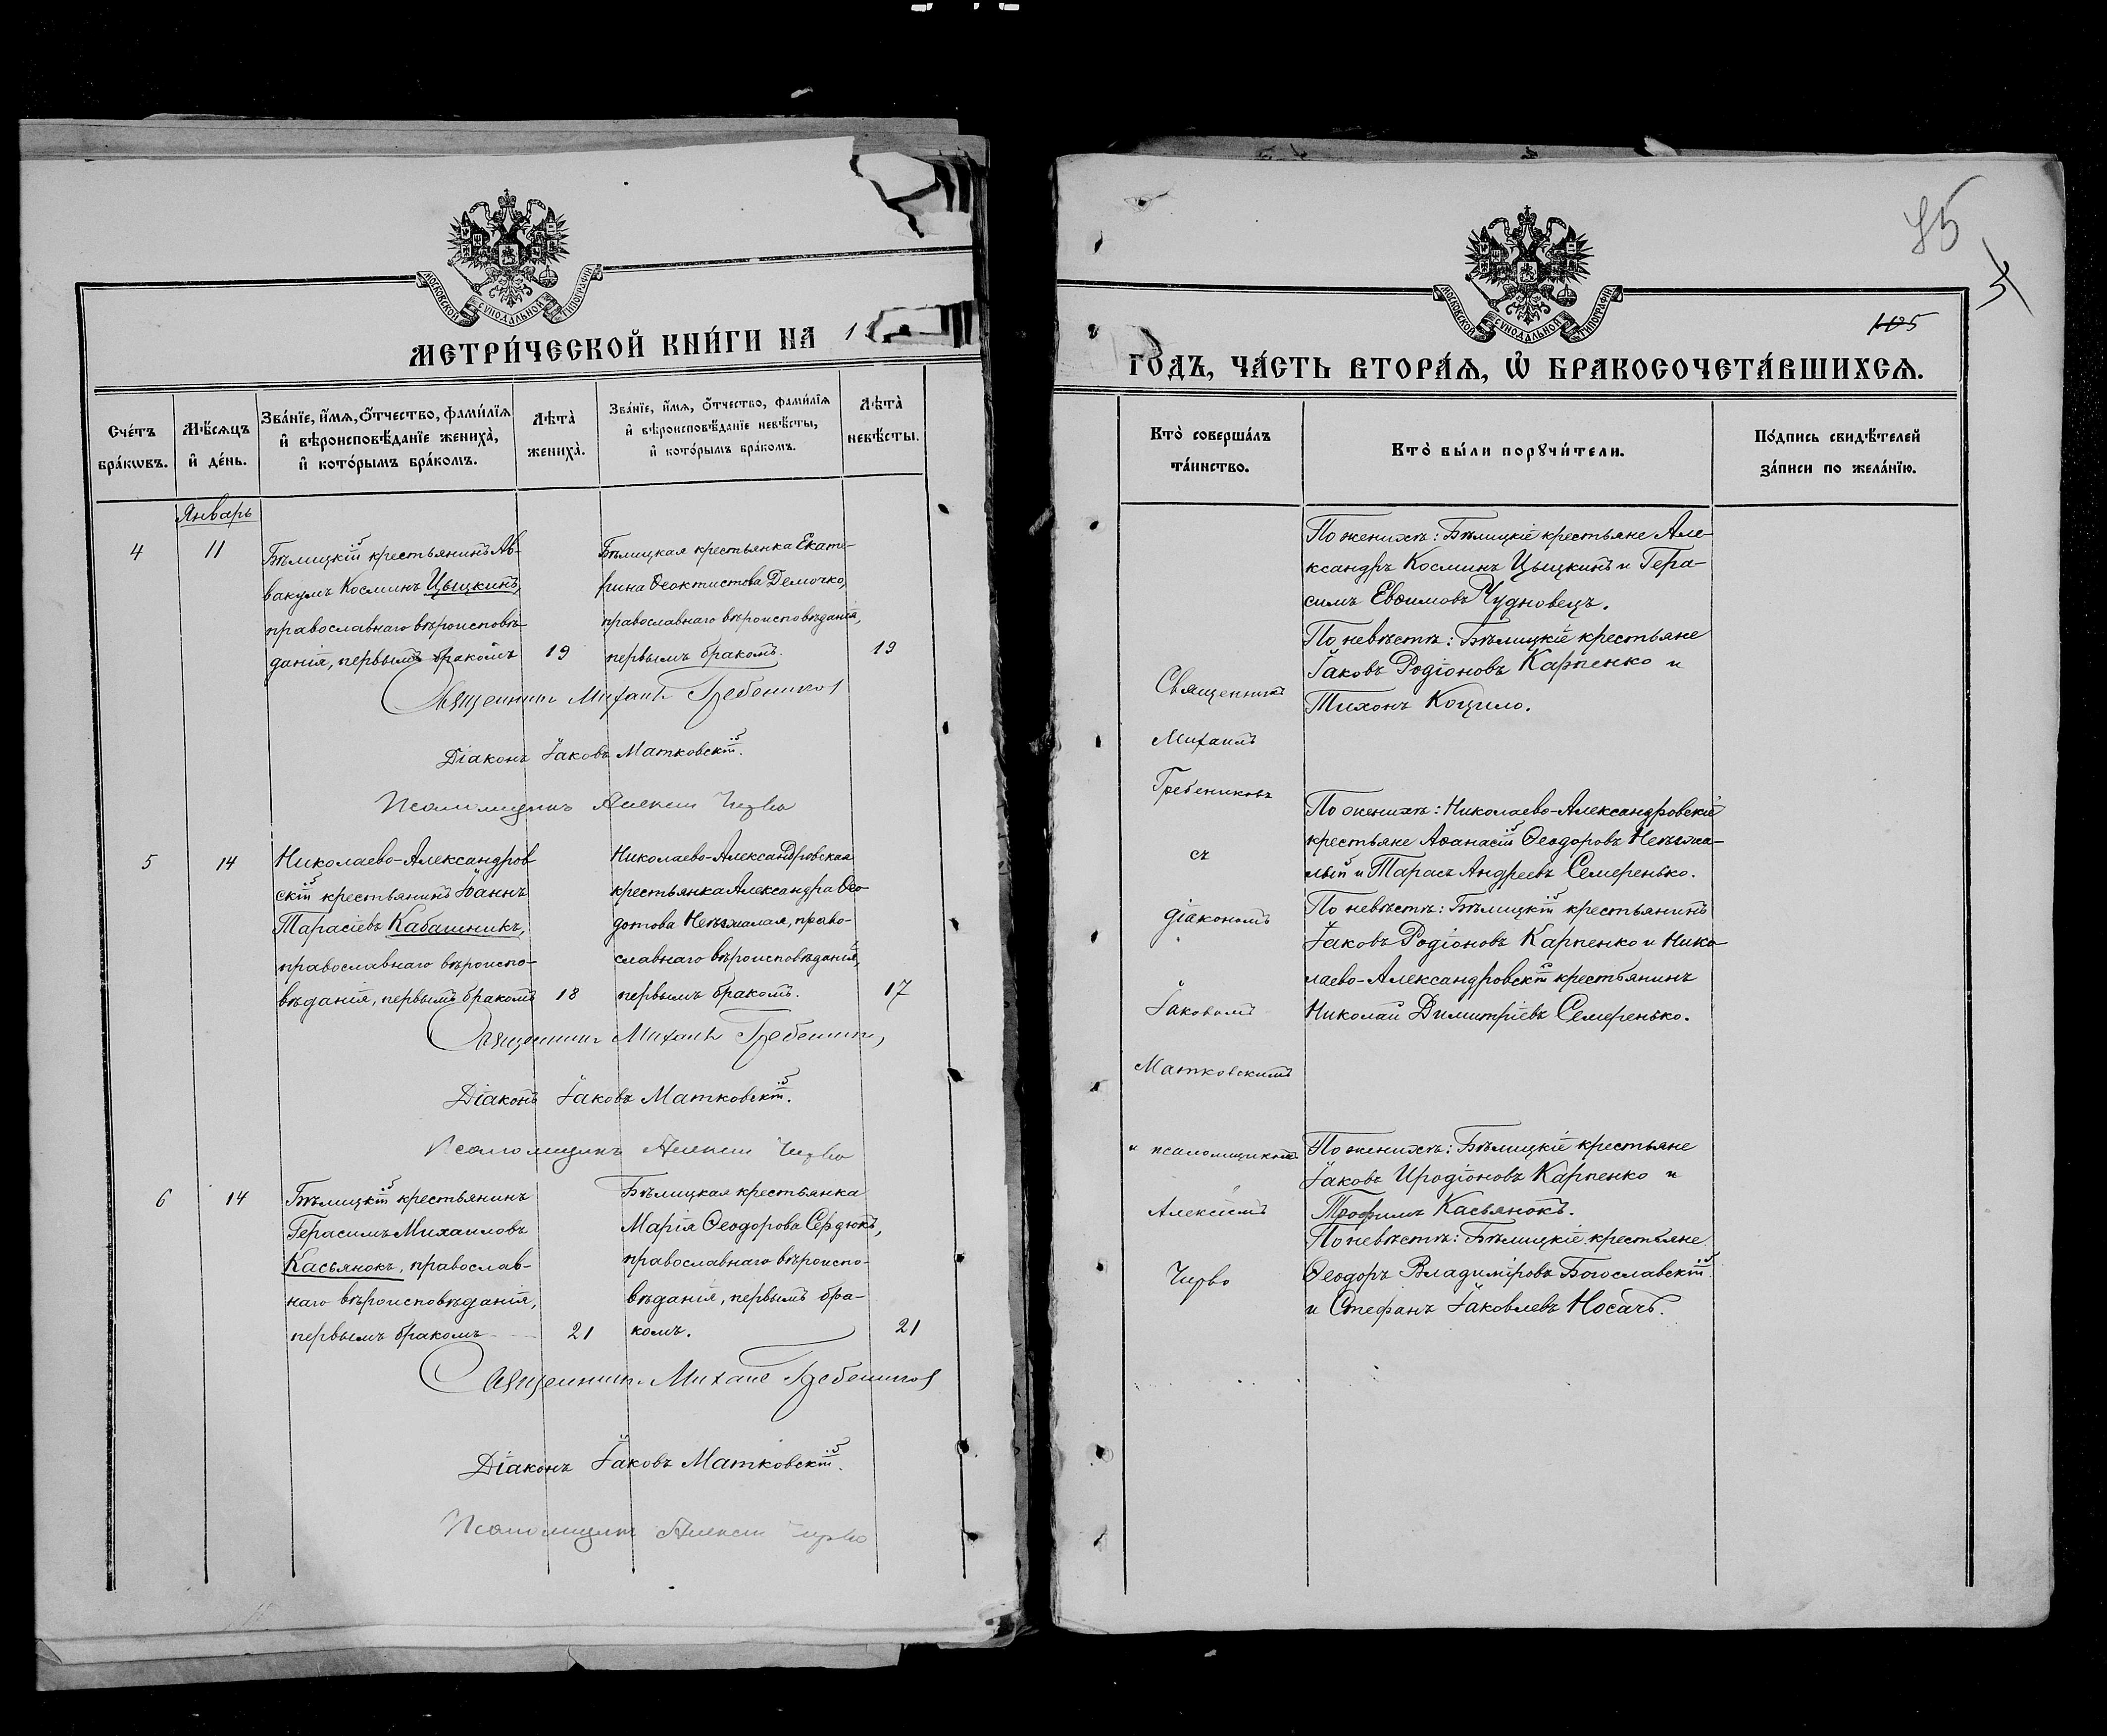 МОСКОВСКОЙ СУНОДАЛЬНОЙ ТИПОГРАФІИ
МЕТРИ́ЧЕСКОЙ КНИ́ГИ НА 1
Сче́тъ бра́ковъ.
Мѣ́сяцъ и҆ де́нь.
Зва́нїе, и҆́мѧ, ѻ҆́тчество, фами́лїѧ
и҆ вѣроисповѣ́данїе жениха̀,
и҆ кото́рымъ бра́комъ.
Лѣ́та̀ жениха̀.
Зва́нїе, и҆́мѧ, ѻ҆́тчество, фами́лїѧ
и҆ вѣроисповѣ́данїе невѣ́сты,
и҆ кото́рымъ бра́комъ.
Лѣ́та̀ невѣ́сты.
Январь
4
11
Бѣлицкій крестьянинъ Ав-
вакумъ Косминъ Цыцкинъ,
православнаго вѣроисповѣ-
данія, первымъ бракомъ
19
Бѣлицкая крестьянка Екате-
рина Ѳеоктистова Демочко,
православнаго вѣроисповѣданія,
первымъ бракомъ.
19
Священникъ Михаилъ Гребениковъ
Діаконъ Іаковъ Матковскій.
Псаломщикъ Алексій Чирво
5
14
Николаево-Александров
скій крестьянинъ Іоаннъ
Тарасіевъ Кабашникъ,
православнаго вѣроиспо-
вѣданія, первымъ бракомъ
18
Николаево-Александровская
крестьянка Александра Ѳео-
дотова Невзмалая, право-
славнаго вѣроисповѣданія,
первымъ бракомъ.
17
Священникъ Михаилъ Гребеник
Діаконъ Іаковъ Матковскій.
Псаломщикъ Алексій Чирво
6
14
Бѣлицкій крестьянинъ
Герасимъ Михаиловъ
Касьянокъ, православ-
наго вѣроисповѣданія,
первымъ бракомъ
21
Бѣлицкая крестьянка
Марія Ѳеодорова Сердюкъ,
православнаго вѣроиспо-
вѣданія, первымъ бра-
комъ.
21
Священникъ Михаилъ Гребениковъ
Діаконъ Іаковъ Матковскій.
Псаломщикъ Алексій Чирво
МОСКОВСКОЙ СУНОДАЛЬНОЙ ТИПОГРАФІИ
85
105
ГОДЪ, ЧА́СТЬ ВТОРА́Ѧ, Ѽ БРАКОСОЧЕТА́ВШИХСѦ.
Кто̀ соверша́лъ
та́инство.
Кто̀ бы́ли порꙋчи́тели.
По́дпись свидѣ́телей
за́писи по жела́нїю.
Священникъ
Михаилъ
Гребениковъ
съ
діакономъ
Іаковомъ
Матковскимъ
и псаломщикомъ
Алексіемъ
Чирво
По женихѣ: Бѣлицкіе крестьяне Але-
ксандръ Косминъ Цыцкинъ и Гера-
симъ Евѳимовъ Чудновецъ.
По невѣстѣ: Бѣлицкіе крестьяне
Іаковъ Родіоновъ Карпенко и
Тихонъ Коцило.
По женихѣ: Николаево-Александровскіе
крестьяне Аѳанасій Ѳеодоровъ Невзма-
лый и Тарасъ Андреевъ Семеренько.
По невѣстѣ: Бѣлицкій крестьянинъ
Іаковъ Родіоновъ Карпенко и Нико-
лаево-Александровскій крестьянинъ
Николай Димитріевъ Семеренько.
По женихѣ: Бѣлицкіе крестьяне
Іаковъ Иродіоновъ Карпенко и
Трофимъ Касьянокъ.
По невѣстѣ: Бѣлицкіе крестьяне
Ѳеодоръ Владиміровъ Богославскій
и Стефанъ Іаковлевъ Носачъ.